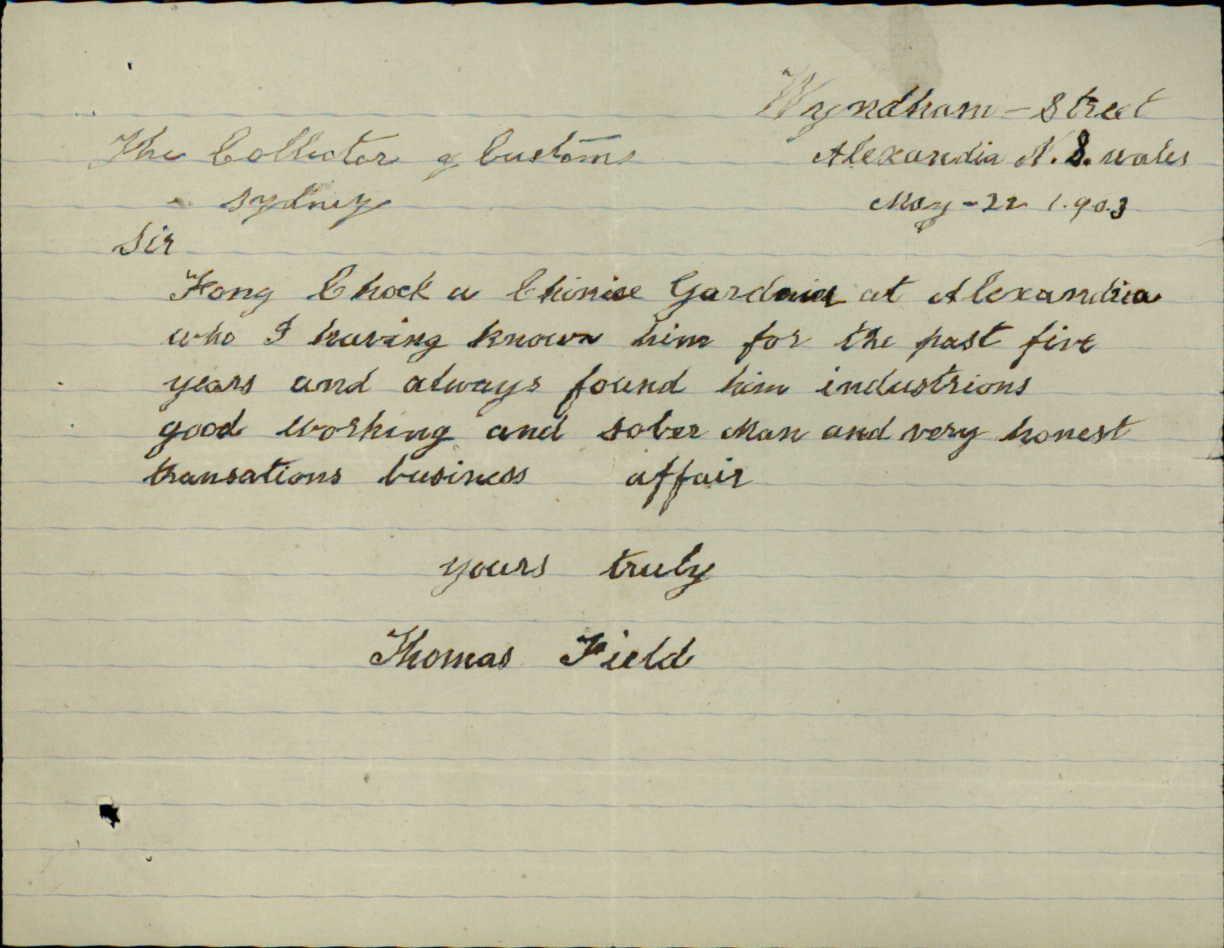 Wyndham - Street
The Collector of Customs Alexandia N. S. wales
Sydney May - 22 1.903
Sir
Fong Chock a Chinise Gardnier at Alexandria
who I having known him for the past five
years and always found him industrions
good working and sober Man and very honest
transations business affair
yours truly
Thomas Field